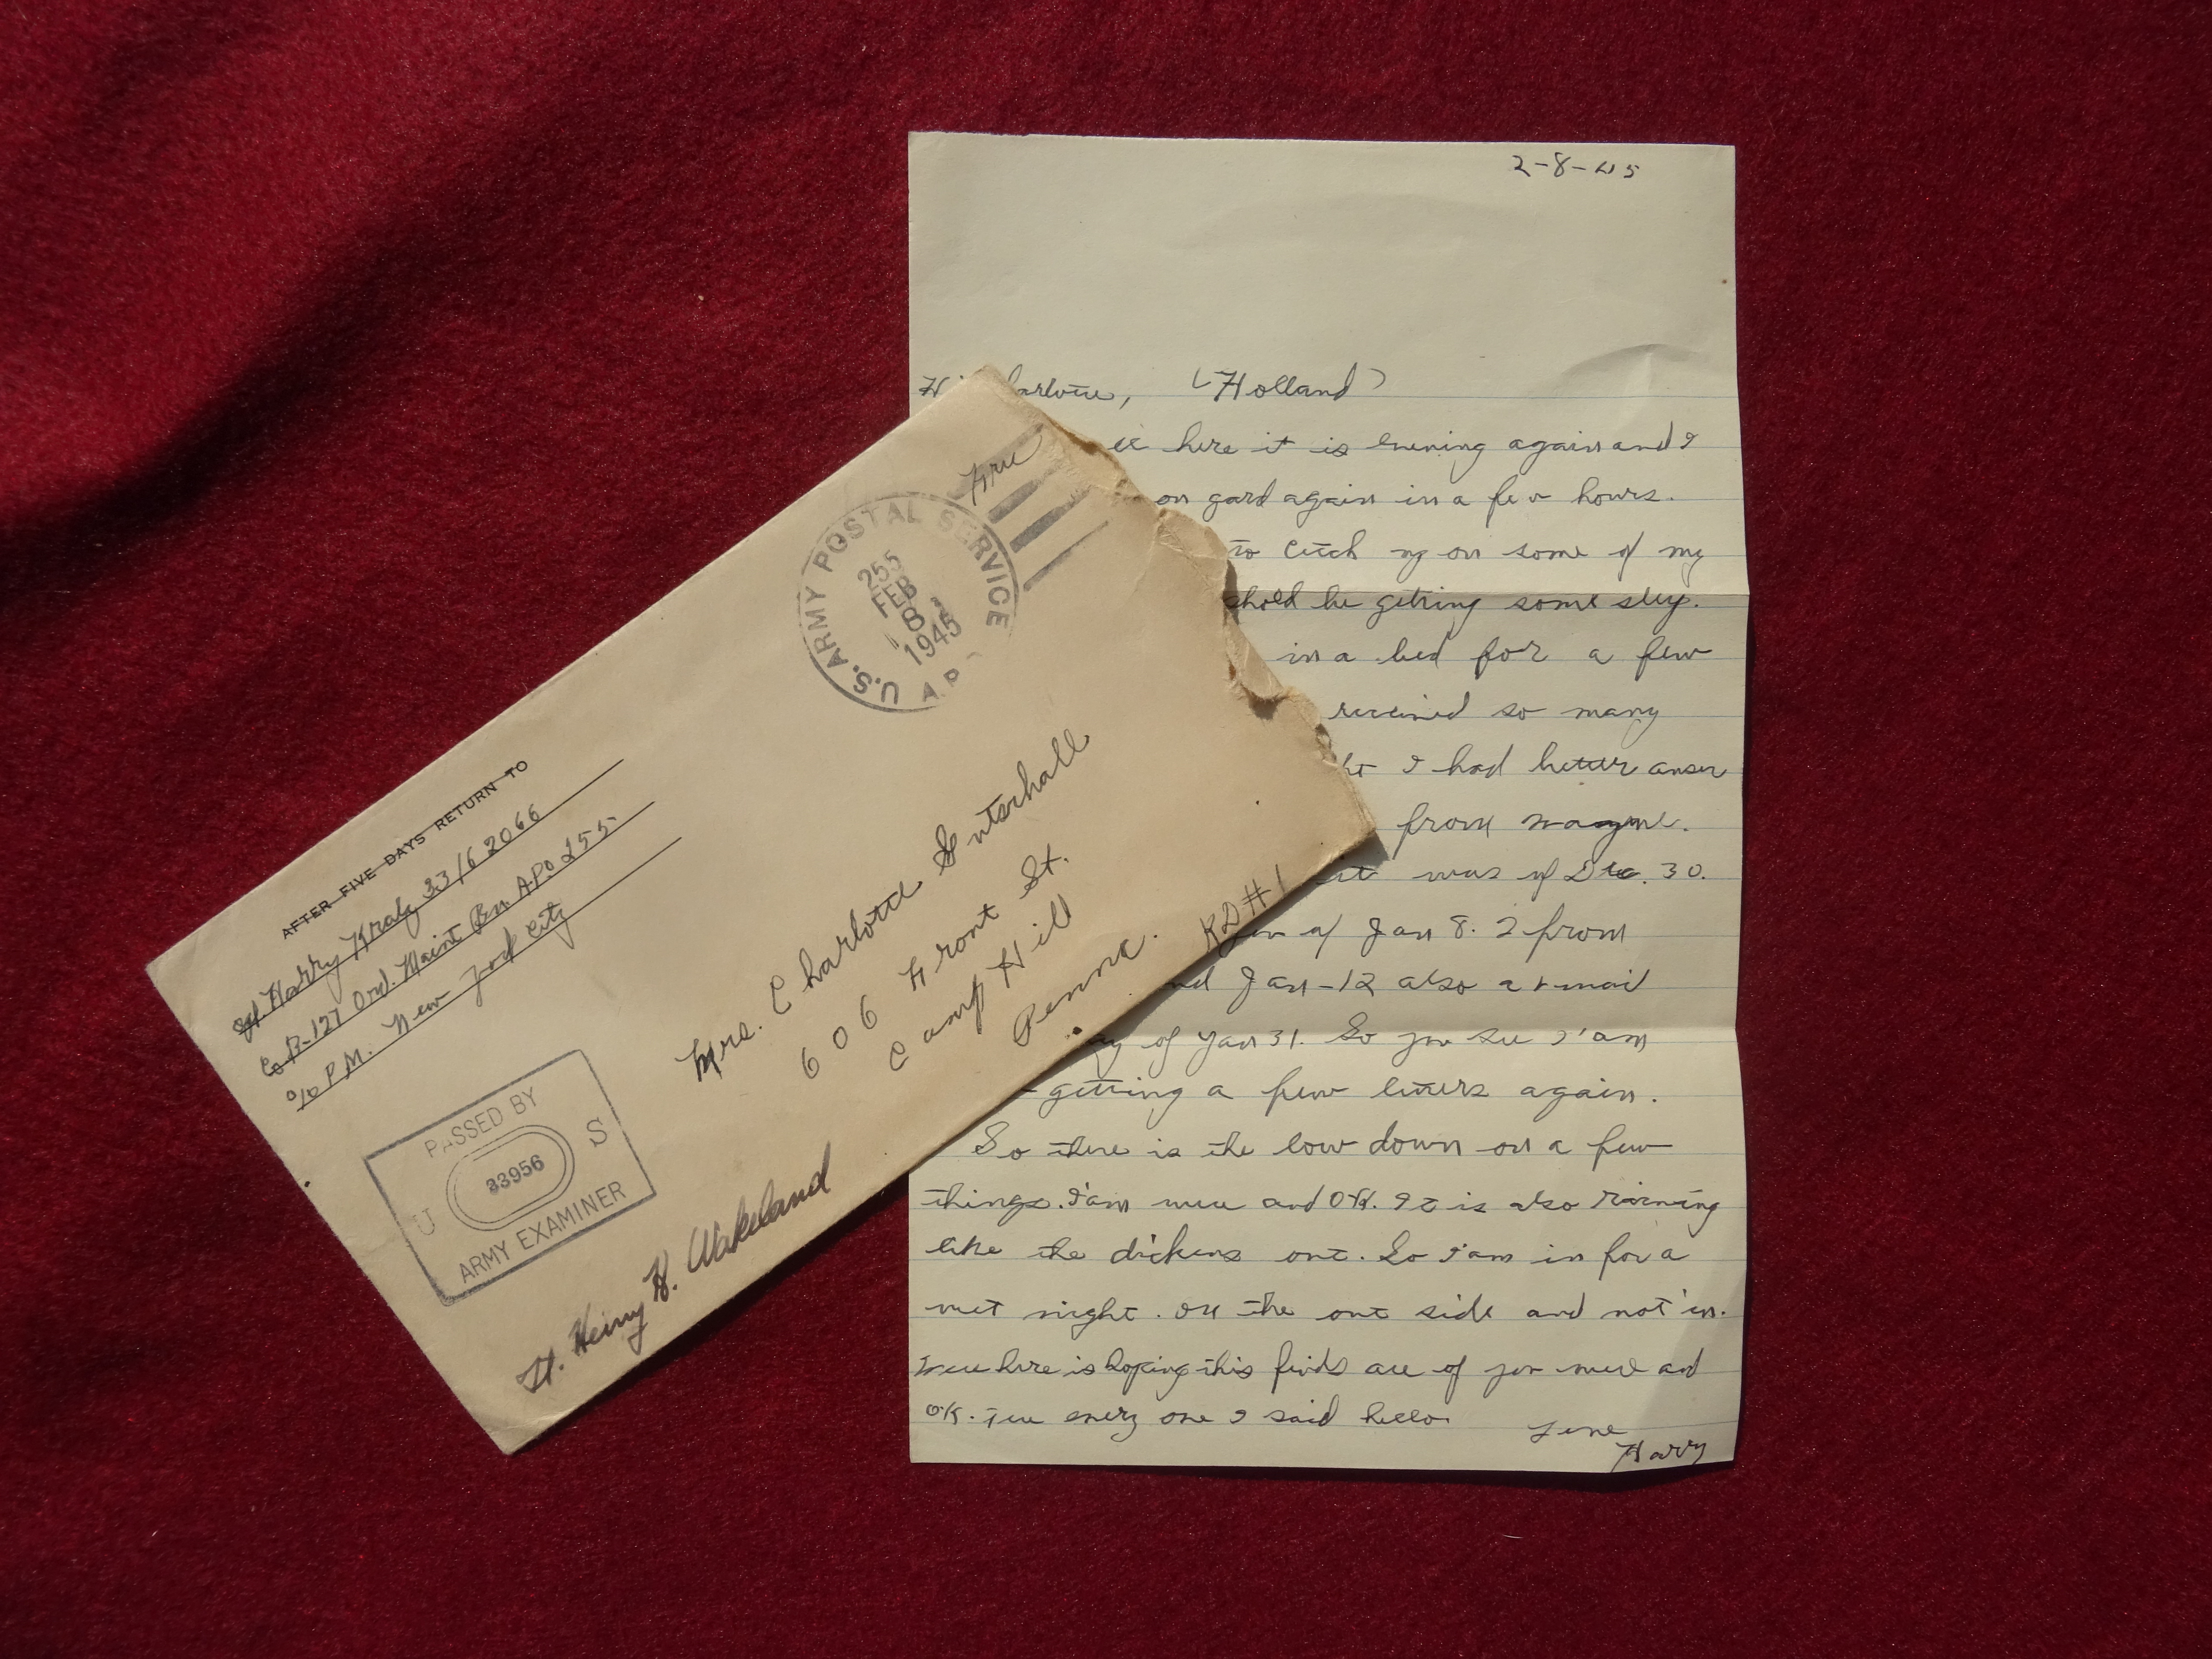 Free
U.S. ARMY POSTAL SERVICE
255
FEB
8
1945
A.P.
AFTER FIVE DAYS RETURN TO
Harry Kraly 33162066
Co B-127 Ord. Maint Bn APO 255
c/o P.M. New York City
Mrs. Charlotte Gutschall
606 Front St.
Camp Hill RD#1
Penna.
PASSED BY
U 33956 S
ARMY EXAMINER
Lt. Henry H. Wakeland
2-8-45
Hi arlotte, (Holland)
ll here it is evening again and I
on gard again in a few hours.
to cetch up on some of my
shold be getting some sleep.
in a bed for a few
received so many
ht I had better anser
from Wayne.
it was of Dec. 30.
of Jan 8. 2 from
nd Jan-12 also a v-mail
of Jan 31. So you see I'am
getting a few letters again.
So there is the low down on a few
things. I'am well and OK. It is also raining
like the dickens out. So I'am in for a
wet night. on the out side and not in.
Well here is hoping this finds all of you well and
OK. Tell every one I said hello.
Love
Harry